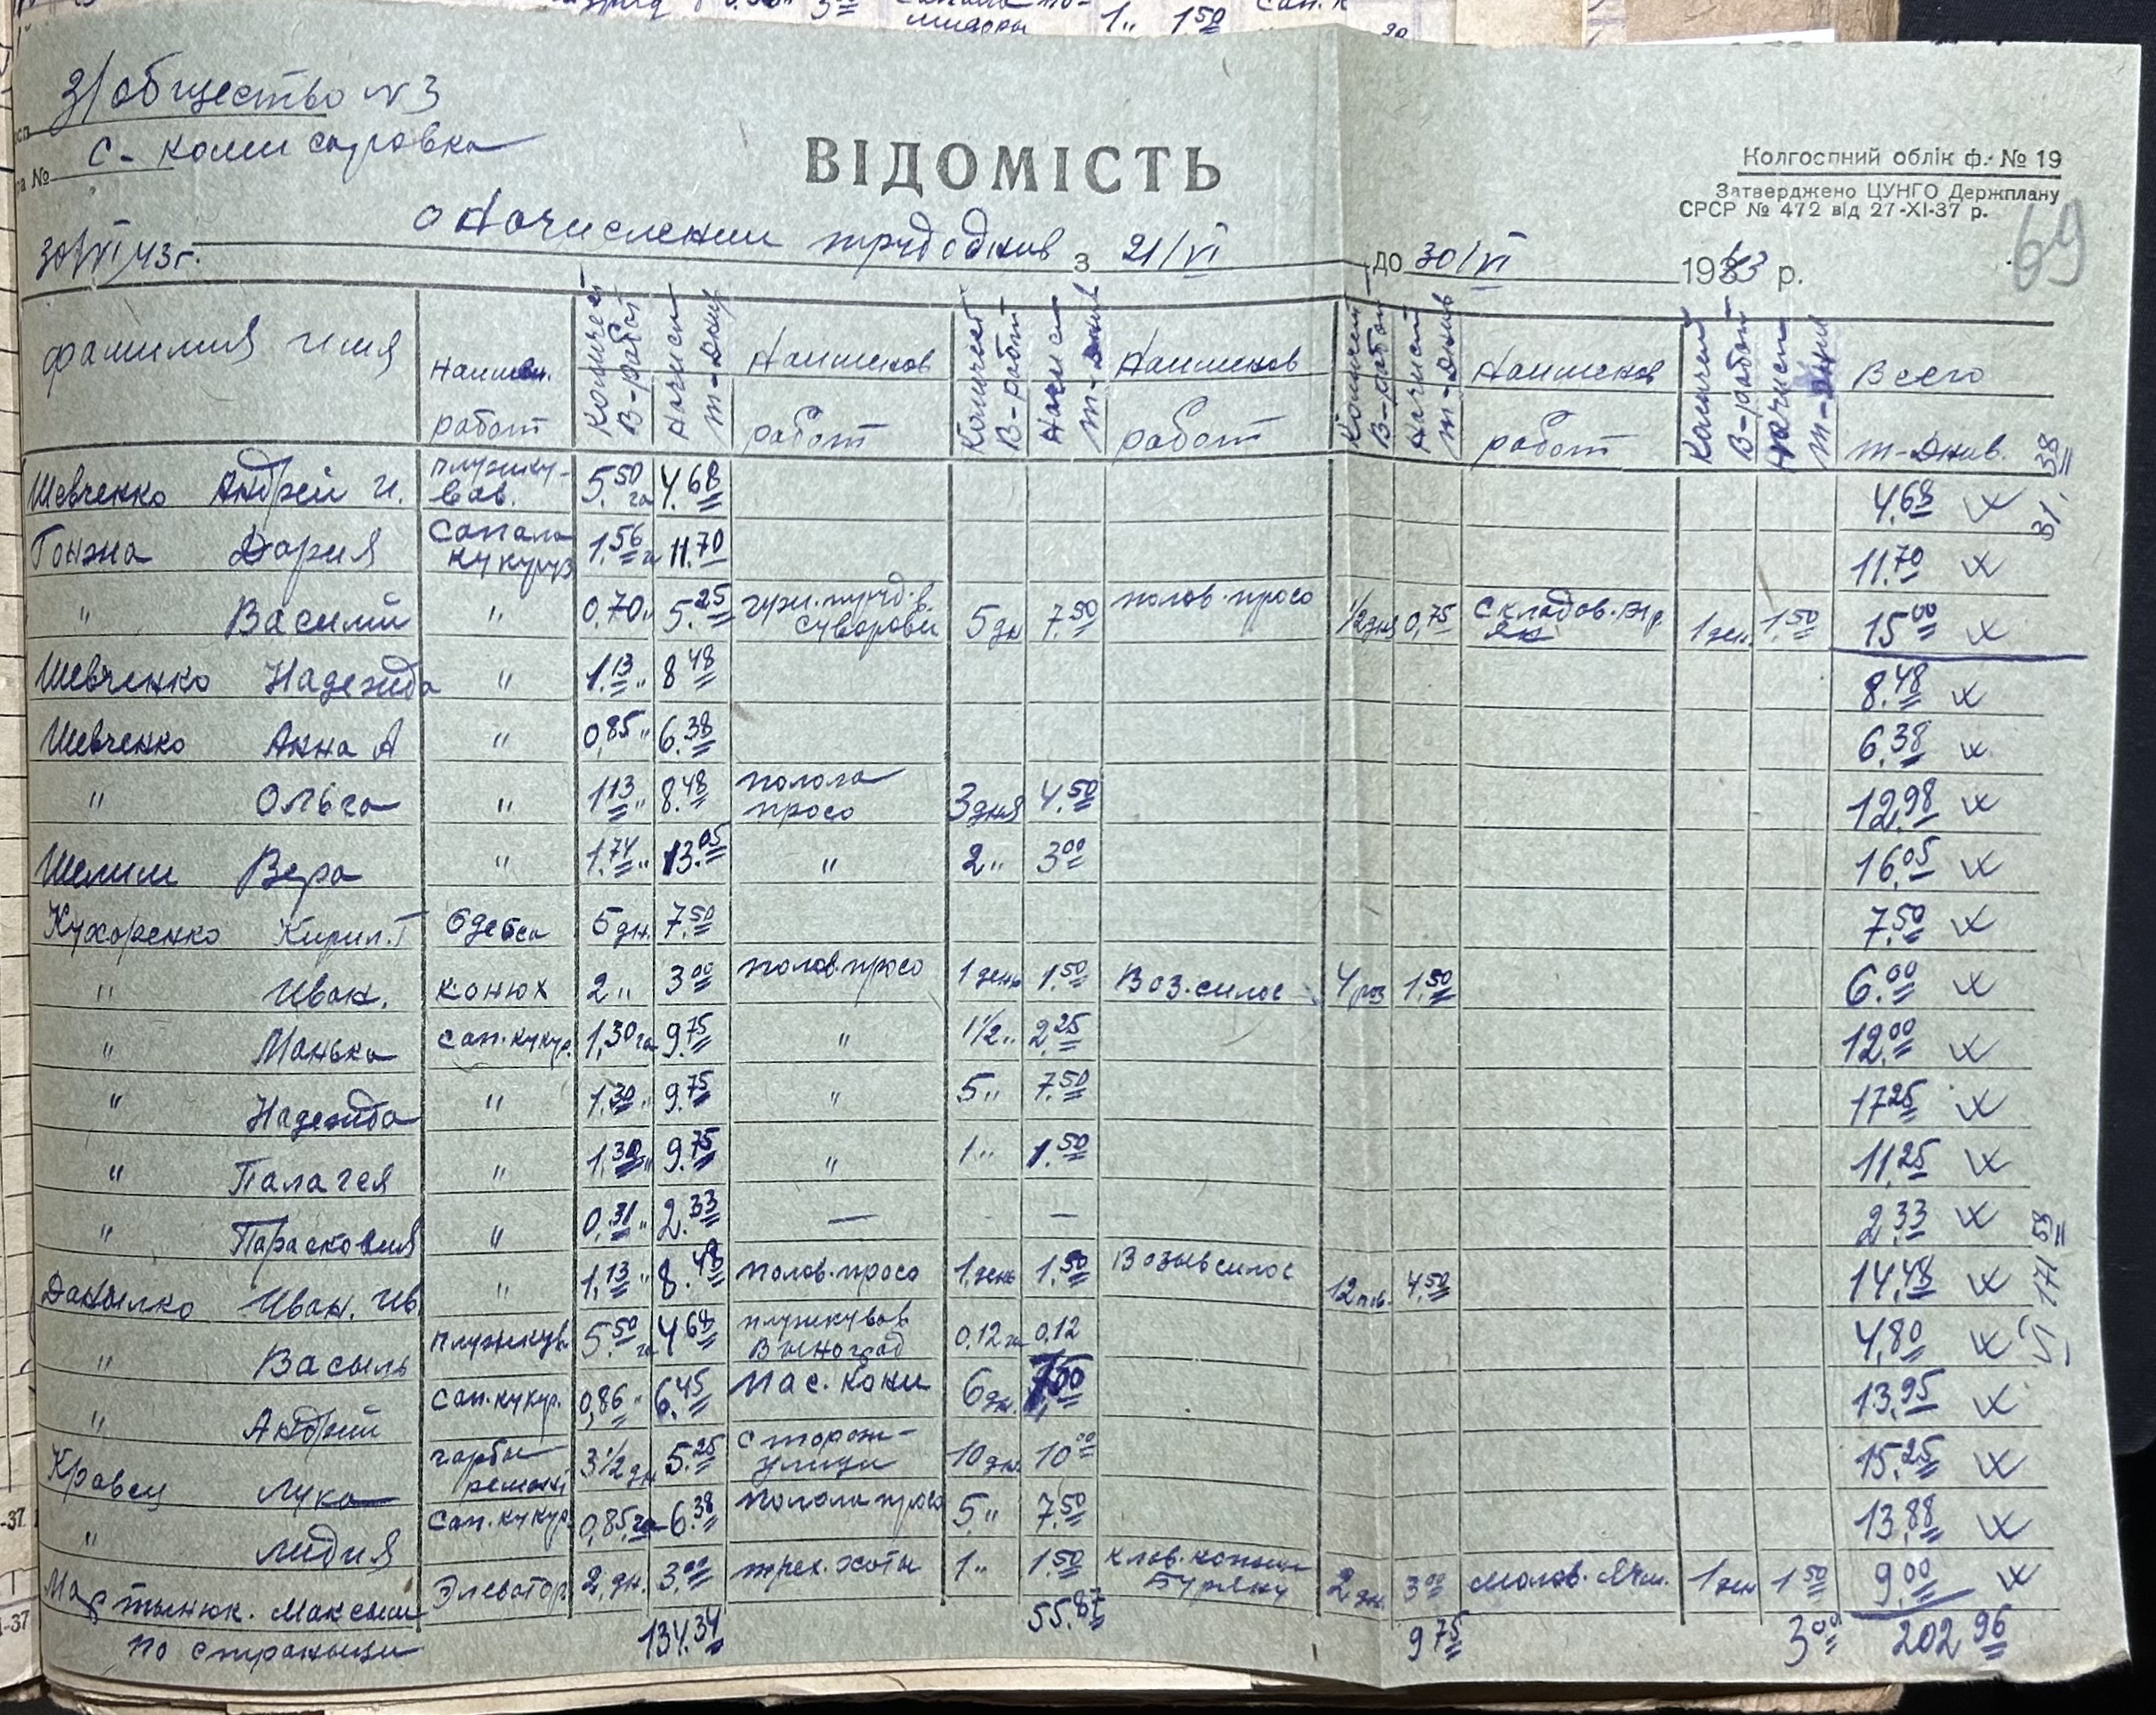 З/общество №3
С- Комисаровка
ВІДОМІСТЬ
Колгоспний облік ф. № 19
Затверджено ЦУНГО Держплану
СРСР № 472 від 27-XI-37 р.
69
30/VI 43г. о Начислении трудоднив з 21/VI до 30/VI 1943 р.
фамилия имя Наимен. работ Количест В-работ Начисл т-днив Наименов работ Количест В-работ Начисл т-днив Наименов работ Количест В-работ Начисл т-днив Наименов работ Количест В-работ Начисл т-днив Всего т-днив.
31.38
Шевченко Андрей И. плужкував. 5.50 га 4.68 4,68
Гонжа Дария Сапала кукуруз 1.56 га 11.70 11.70
" Василий " 0,70 " 5.25 5 дн 7.50 полов. просо 1/2 дня 0,75 Складов. 1 ден. 1.50 15.00
Шевченко Надежда " 1.13 " 8.48 8.48
Шевченко Анна А " 0,85 " 6.38 6.38
" Ольга " 1.13 " 8.48 полола просо 3 дня 4.50 12,98
Шелим Вера " 1.74 " 13.05 " 2 " 3.00 16.05
Кухоренко Кирил. Г Одеса 5 дн. 7.50 7.50
" Иван. конюх 2 " 3.00 полов. просо 1 день 1.50 Воз. силос 4 раз 1.50 6.00
" Манька Сап. кукур. 1,30 га 9.75 " 1 1/2 " 2.25 12.00
" Надежда " 1.30 " 9.75 " 5 " 7.50 17.25
" Палагея " 1.30 " 9.75 " 1 " 1.50 11.25
" Парасковия " 0.31 " 2.33 — — 2.33
Данылко Иван. Ив. " 1,13 " 8.48 полов. просо 1 день 1.50 Возыв силос 12 пов. 4.50 14.48
171.58
" Василь плужкув. 5.50 га 4.68 плужкував Виноград 0.12 га 0,12 4,80
" Андрий Сап. кукур. 0,86 " 6.45 Пас. кони 6 дн. 7.50 13.95
Кравец Лука гарбы ремонт 3 1/2 дн 5.25 сторож- улици 10 дн. 10.00 15.25
" Лидия Сап. кукур. 0,85 га 6.38 полола просо 5 " 7.50 13.88
Мартынюк. Максым Элеватор 2 дн. 3.00 хаты 1 " 1.50 2 дн. 3.00 молов. ячм. 1 ден 1.50 9.00
по страныци 134.34 55.87 9.75 3.00 202.96